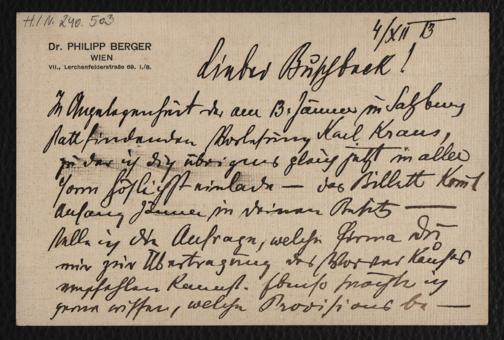 H.I.N. 240.503
Dr. PHILIPP BERGER
WIEN
VII., Lerchenfelderstraße 69. I./8.
4/XII 13
Lieber Buschbeck!
In Angelegenheit der am 13. Jänner in Salzburg
stattfindenden Vorlesung Karl Kraus,
zu der ich dich übrigens gleich jetzt in aller
Form höflichst einlade — das Billett kommt
Anfang Jänner in deinen Besitz —
stelle ich die Anfrage, welche Firma du
mir zur Übertragung des Vorverkaufes
empfehlen kannst. Ebenso möchte ich
gerne wissen, welche Provision sie be—